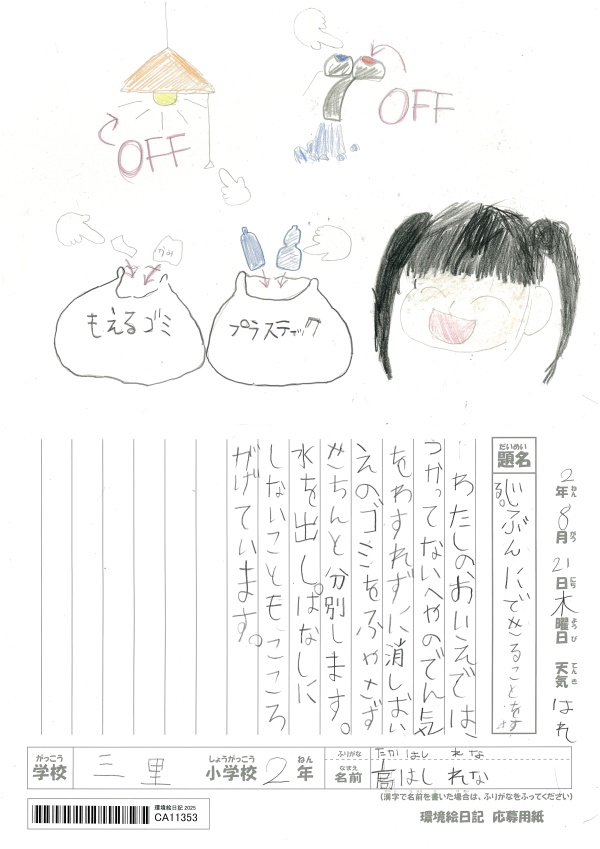 OFF
OFF
かみ
もえるゴミ
プラスティック
2年8月21日木曜日 天気 はれ
ねん がつ にち ようび てんき
だいめい
題名
じぶんにできることをす
る。
わたしのおいえでは、
つかってないへやのでん気
をわすれずに消しおい
えのゴミをふやさず
きちんと分別します。
水を出しぱなしに
しないこともこころ
がけています。
がっこう しょうがっこう ねん
学校 三里 小学校 2年
ふりがな たかはし れな
なまえ
名前 高はし れな
(漢字で名前を書いた場合は、ふりがなをふってください)
環境絵日記 2025
CA11353
環境絵日記 応募用紙